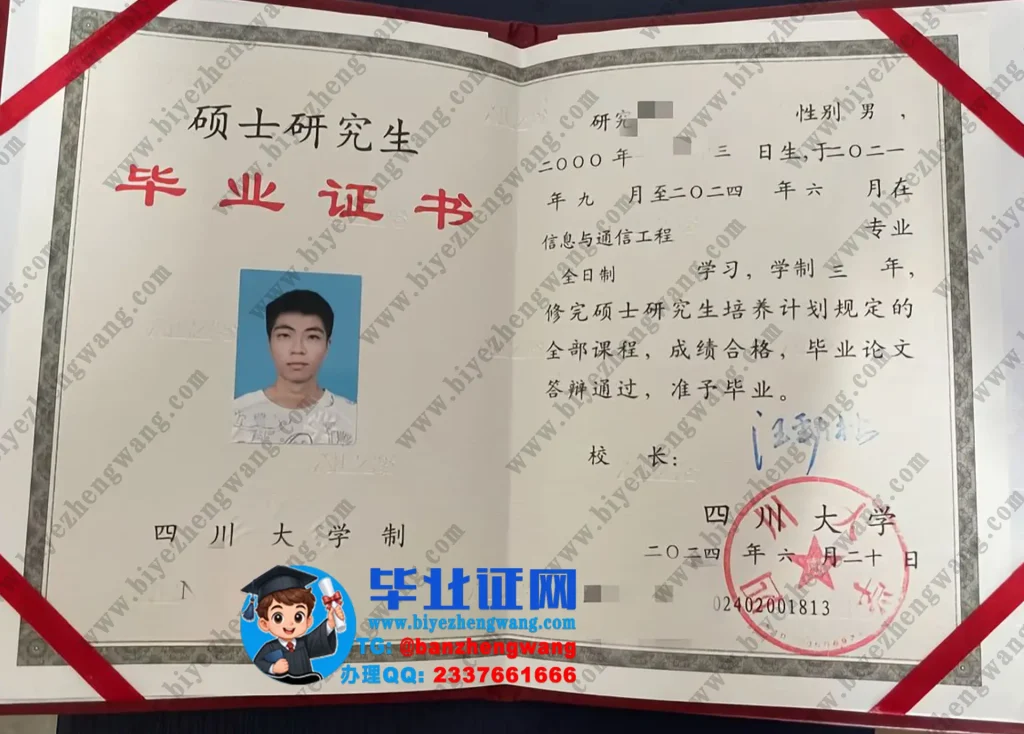 硕士研究生
毕业证书
四川大学制
研究 性别 男 ,
二〇〇〇 年 三 日生,于二〇二一
年 九 月至二〇二四 年 六 月在
信息与通信工程 专业
全日制 学习, 学制 三 年,
修完硕士研究生培养计划规定的
全部课程, 成绩合格, 毕业论文
答辩通过, 准予毕业。
校 长:
四川大学
二〇二四 年 六 月二十 日
02402001813
毕业证网
www.biyezhengwang.com
TG: @banzhengwang
办理QQ: 2337661666
www.biyezhengwang.com